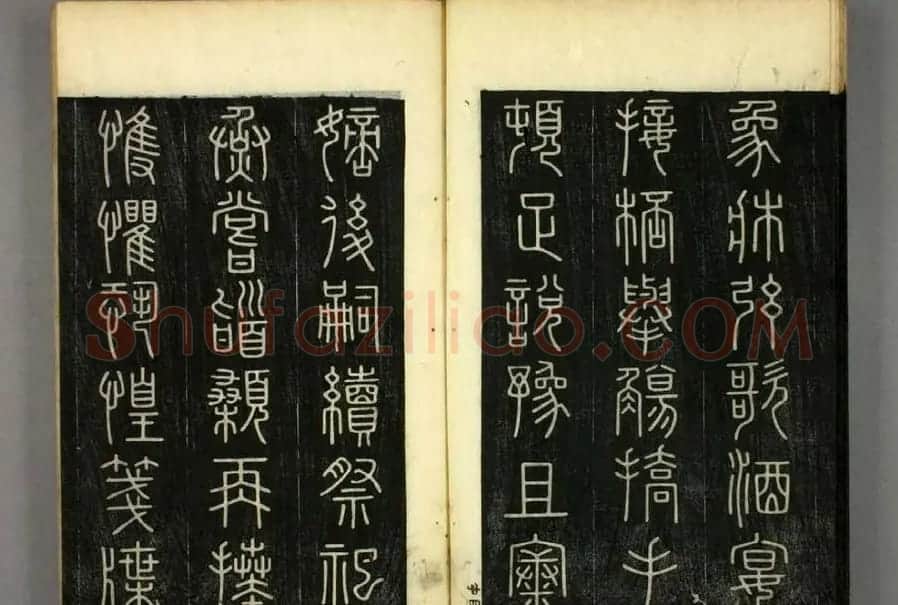 象床弦歌酒宴
接杯舉觴撟手
頓足說豫且康
嫡後嗣續祭祀
烝嘗誚顙再拜
悚懼恐惶箋牒
Shufaziliao.COM